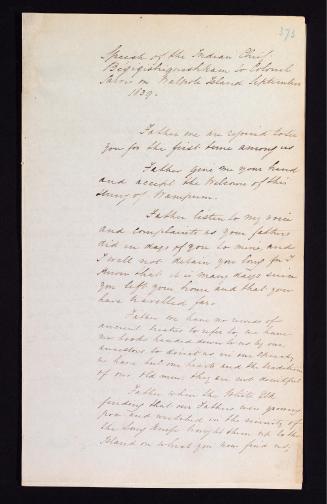 373
Speech of the Indian Chief
to Colonel
Jarvis on Walpole Island September
1839.
Father we are rejoiced to see
you for the first time among us
Father give me your hand
and accept the Welcome of this
String of Wampum.
Father listen to my voice
and complaints as your fathers
did in days of you to mine, and
I will not detain you long for I
know that it is many days since
you left your home and that you
have travelled far
Father we have no words of
ancient treaties to refer to, we have
no books handed down to us by our
ancestors to direct us in our
we have but our hearts and the traditions
of our old men they are not deceitful
Father when the White Elk
finding that our Fathers were growing
poor and wretched in the vicinity of
the Long Knife brought them up to the
Island on which you now find us,